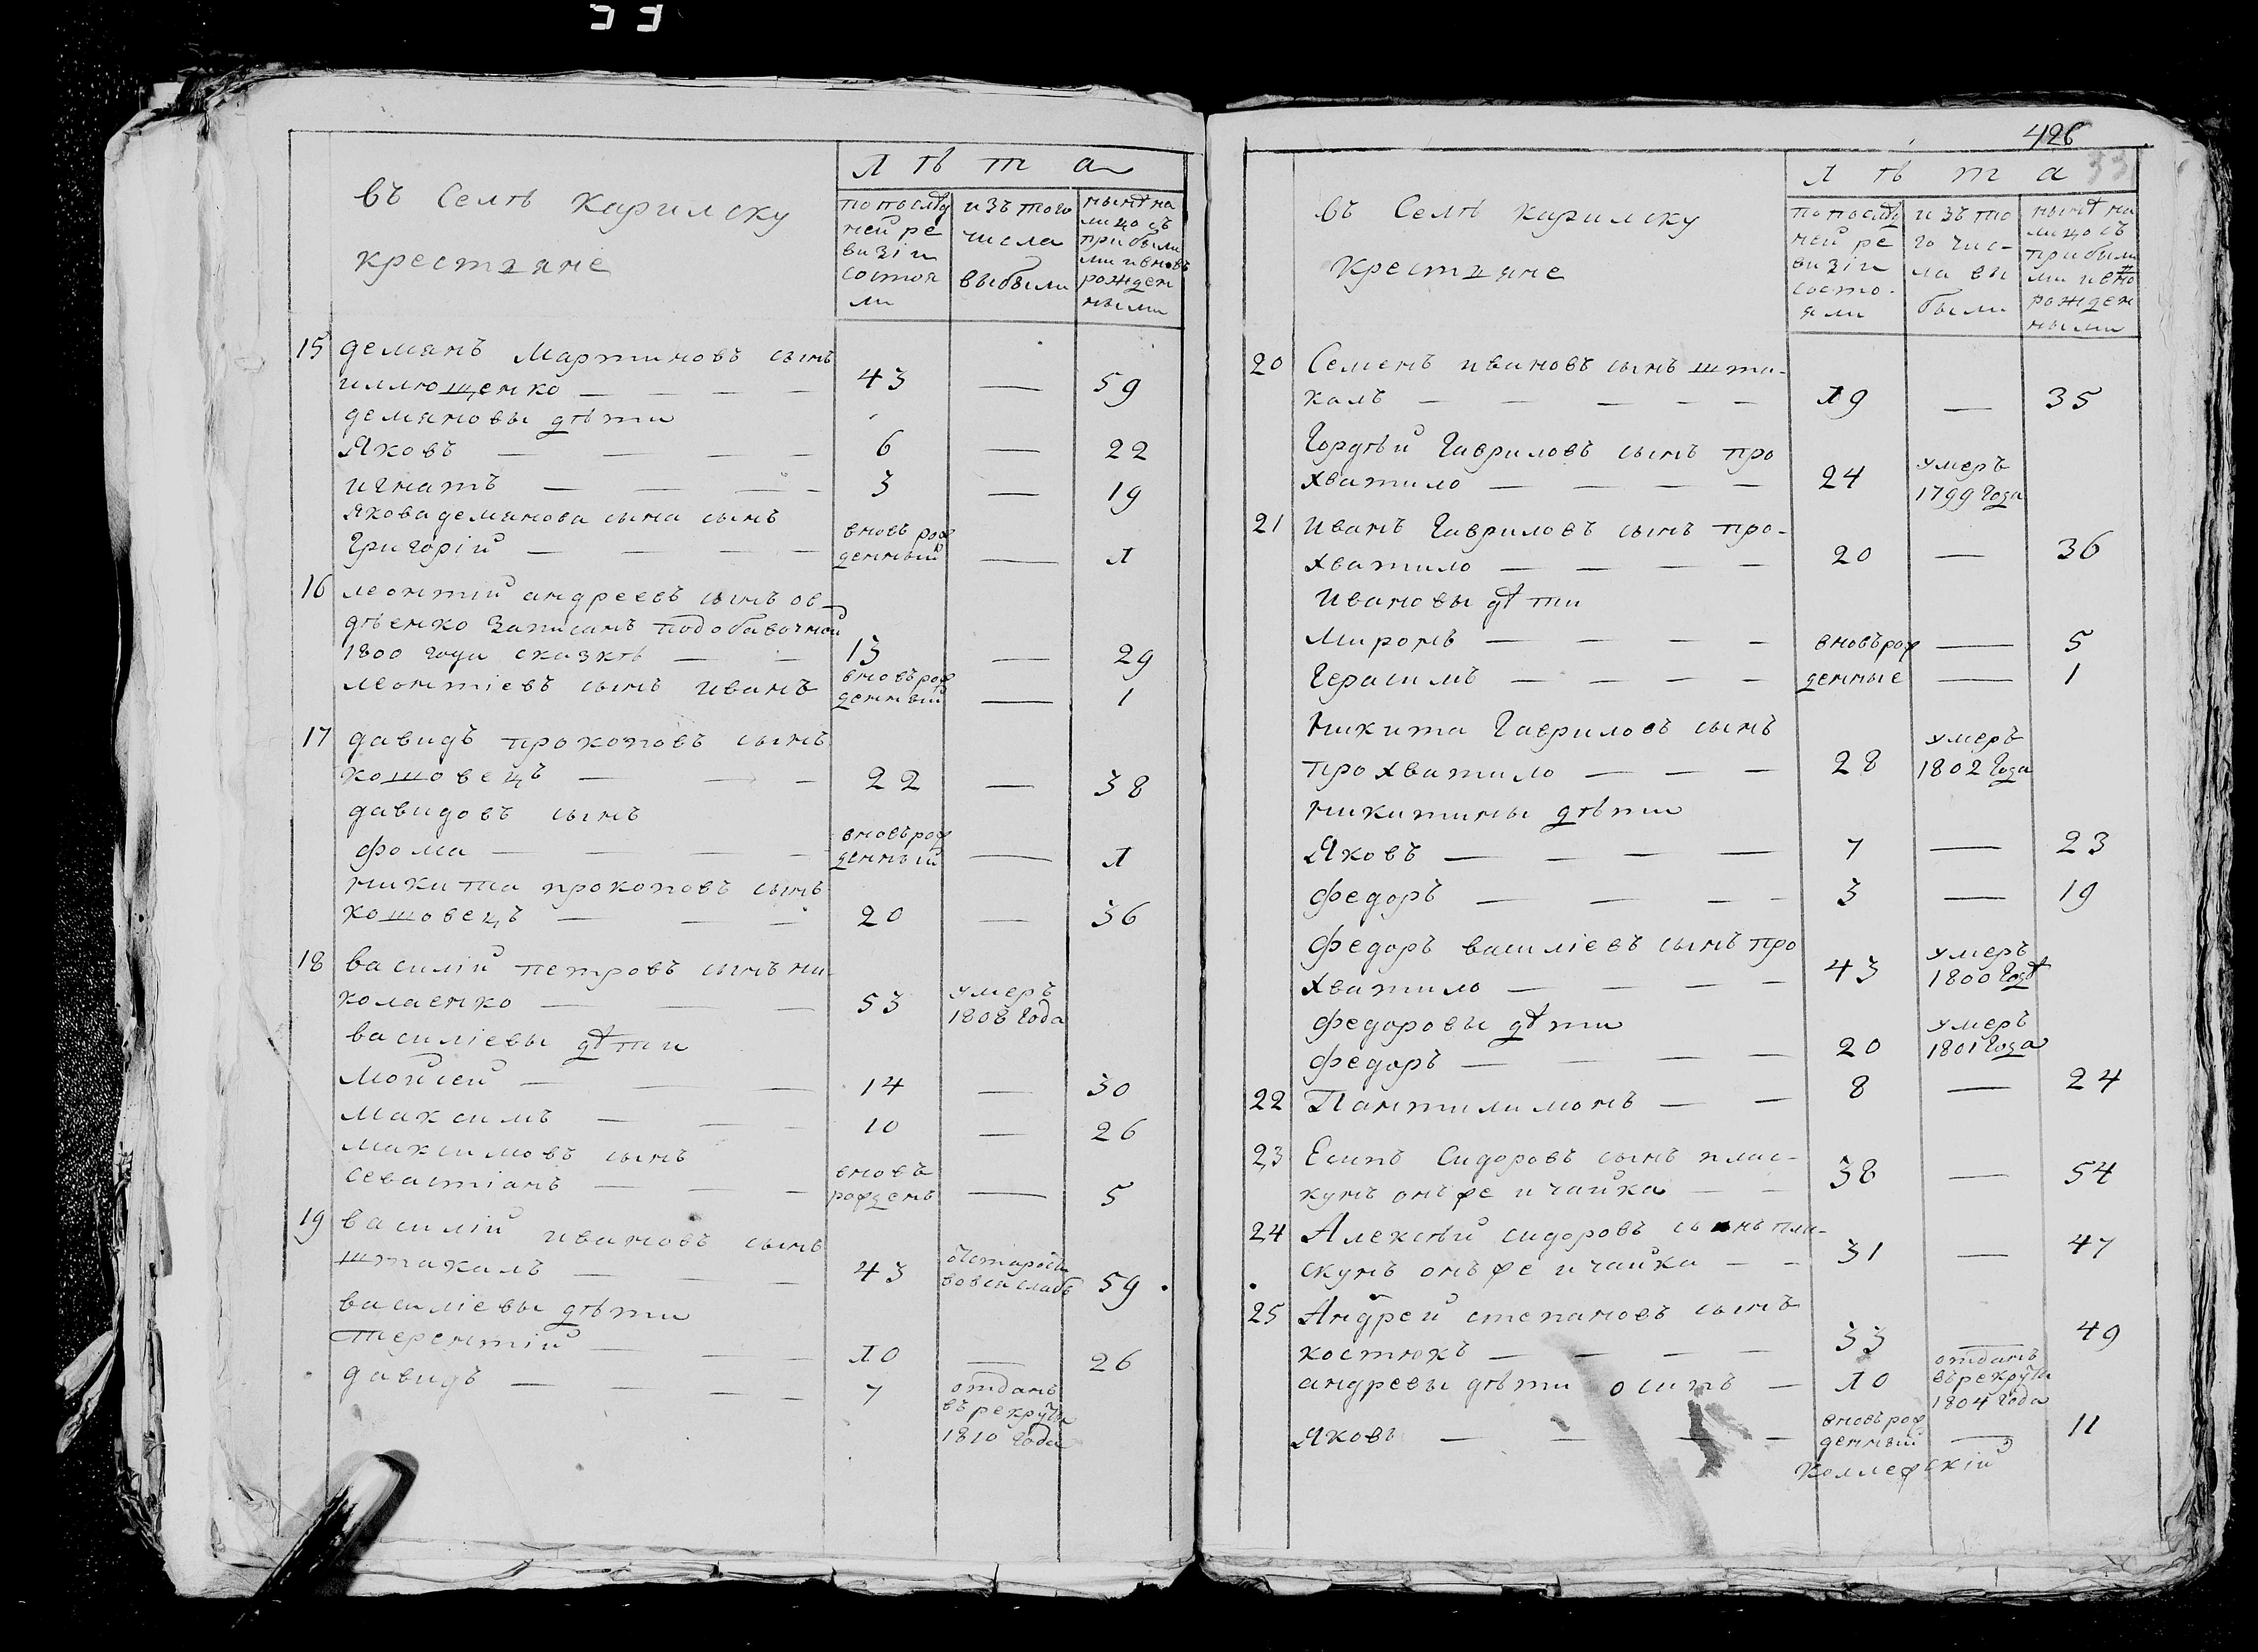 Лѣта
въ Селѣ Карилску
крестьяне
по послѣд
ней ре
визіи
состоя
ли
изъ того
числа
выбыли
нынѣ на
лицо съ
прибыли
ми и вновь
рожден
ными
15 демянъ Мартиновъ сынъ
иллющенко — — — 43 — 59
демяновы дѣти
Яковъ — — — — 6 — 22
игнатъ — — — — 3 — 19
якова демянова сына сынъ
Григорій — — — — вновь рож
денный — 1
16 леонтій андреевъ сынъ ов
дѣенко Записанъ по добавочной
1800 года сказкѣ — — 13 — 29
леонтіевъ сынъ иванъ вновъ рож
денный — 1
17 давидъ прокоповъ сынъ
кошовецъ — — — 22 — 38
давидовъ сынъ
фома — — — вновъ рож
денный — 1
никита прокоповъ сынъ
кошовецъ — — — 20 — 36
18 василій петровъ сынъ ни
колаенко — — — 53 умеръ
1808 Года
василіевы дѣти
Мойсей — — — 14 — 30
Максимъ — — — 10 — 26
максимовъ сынъ
севастіанъ — — — вновъ
рожденъ — 5
19 василій ивановъ сынъ
штакалъ — — — 43 59
василіевы дѣти
терентій — — — 10 — 26
давидъ — — — — 7 отданъ
въ рекруты
1810 года
426
Лѣта
въ Селѣ карилску
крестьяне
по послѣд
ней ре
визіи
состо-
яли
изъ то
го чис-
ла вы
были
нынѣ на
лицо съ
прибыли
ми и вно
рожден
ными
20 Семенъ ивановъ сынъ шта-
калъ — — — — — 19 — 35
Гордѣй Гавриловъ сынъ про
хватило — — — — 24 умеръ
1799 Года
21 иванъ Гавриловъ сынъ про-
хватило — — — — 20 — 36
Ивановы дѣти
Миронъ — — — — вновъ рож — 5
Герасимъ — — — — денные — 1
Никита Гавриловъ сынъ
прохватило — — — 28 умеръ
1802 Года
никитины дѣти
Яковъ — — — — 7 — 23
федоръ — — — — 3 — 19
федоръ василіевъ сынъ про
хватило — — — — 43 умеръ
1800 Годѣ
федоровы дѣти
федоръ — — — — 20 умеръ
1801 Года
22 Пантилимонъ — — 8 — 24
23 Есипъ Сидоровъ сынъ плас-
кунъ онъ же и чайка — — 38 — 54
24 Алексѣй сидоровъ сынъ пла-
скунъ онъ же и чайка — — 31 — 47
25 Андрей степановъ сынъ
костюкъ — — — — 33 — 49
андреевы дѣти осипъ — 10 отданъ
въ рекруты
1804 Года
Яковъ — — — — вновъ рож
денный — 11
Коллежскій